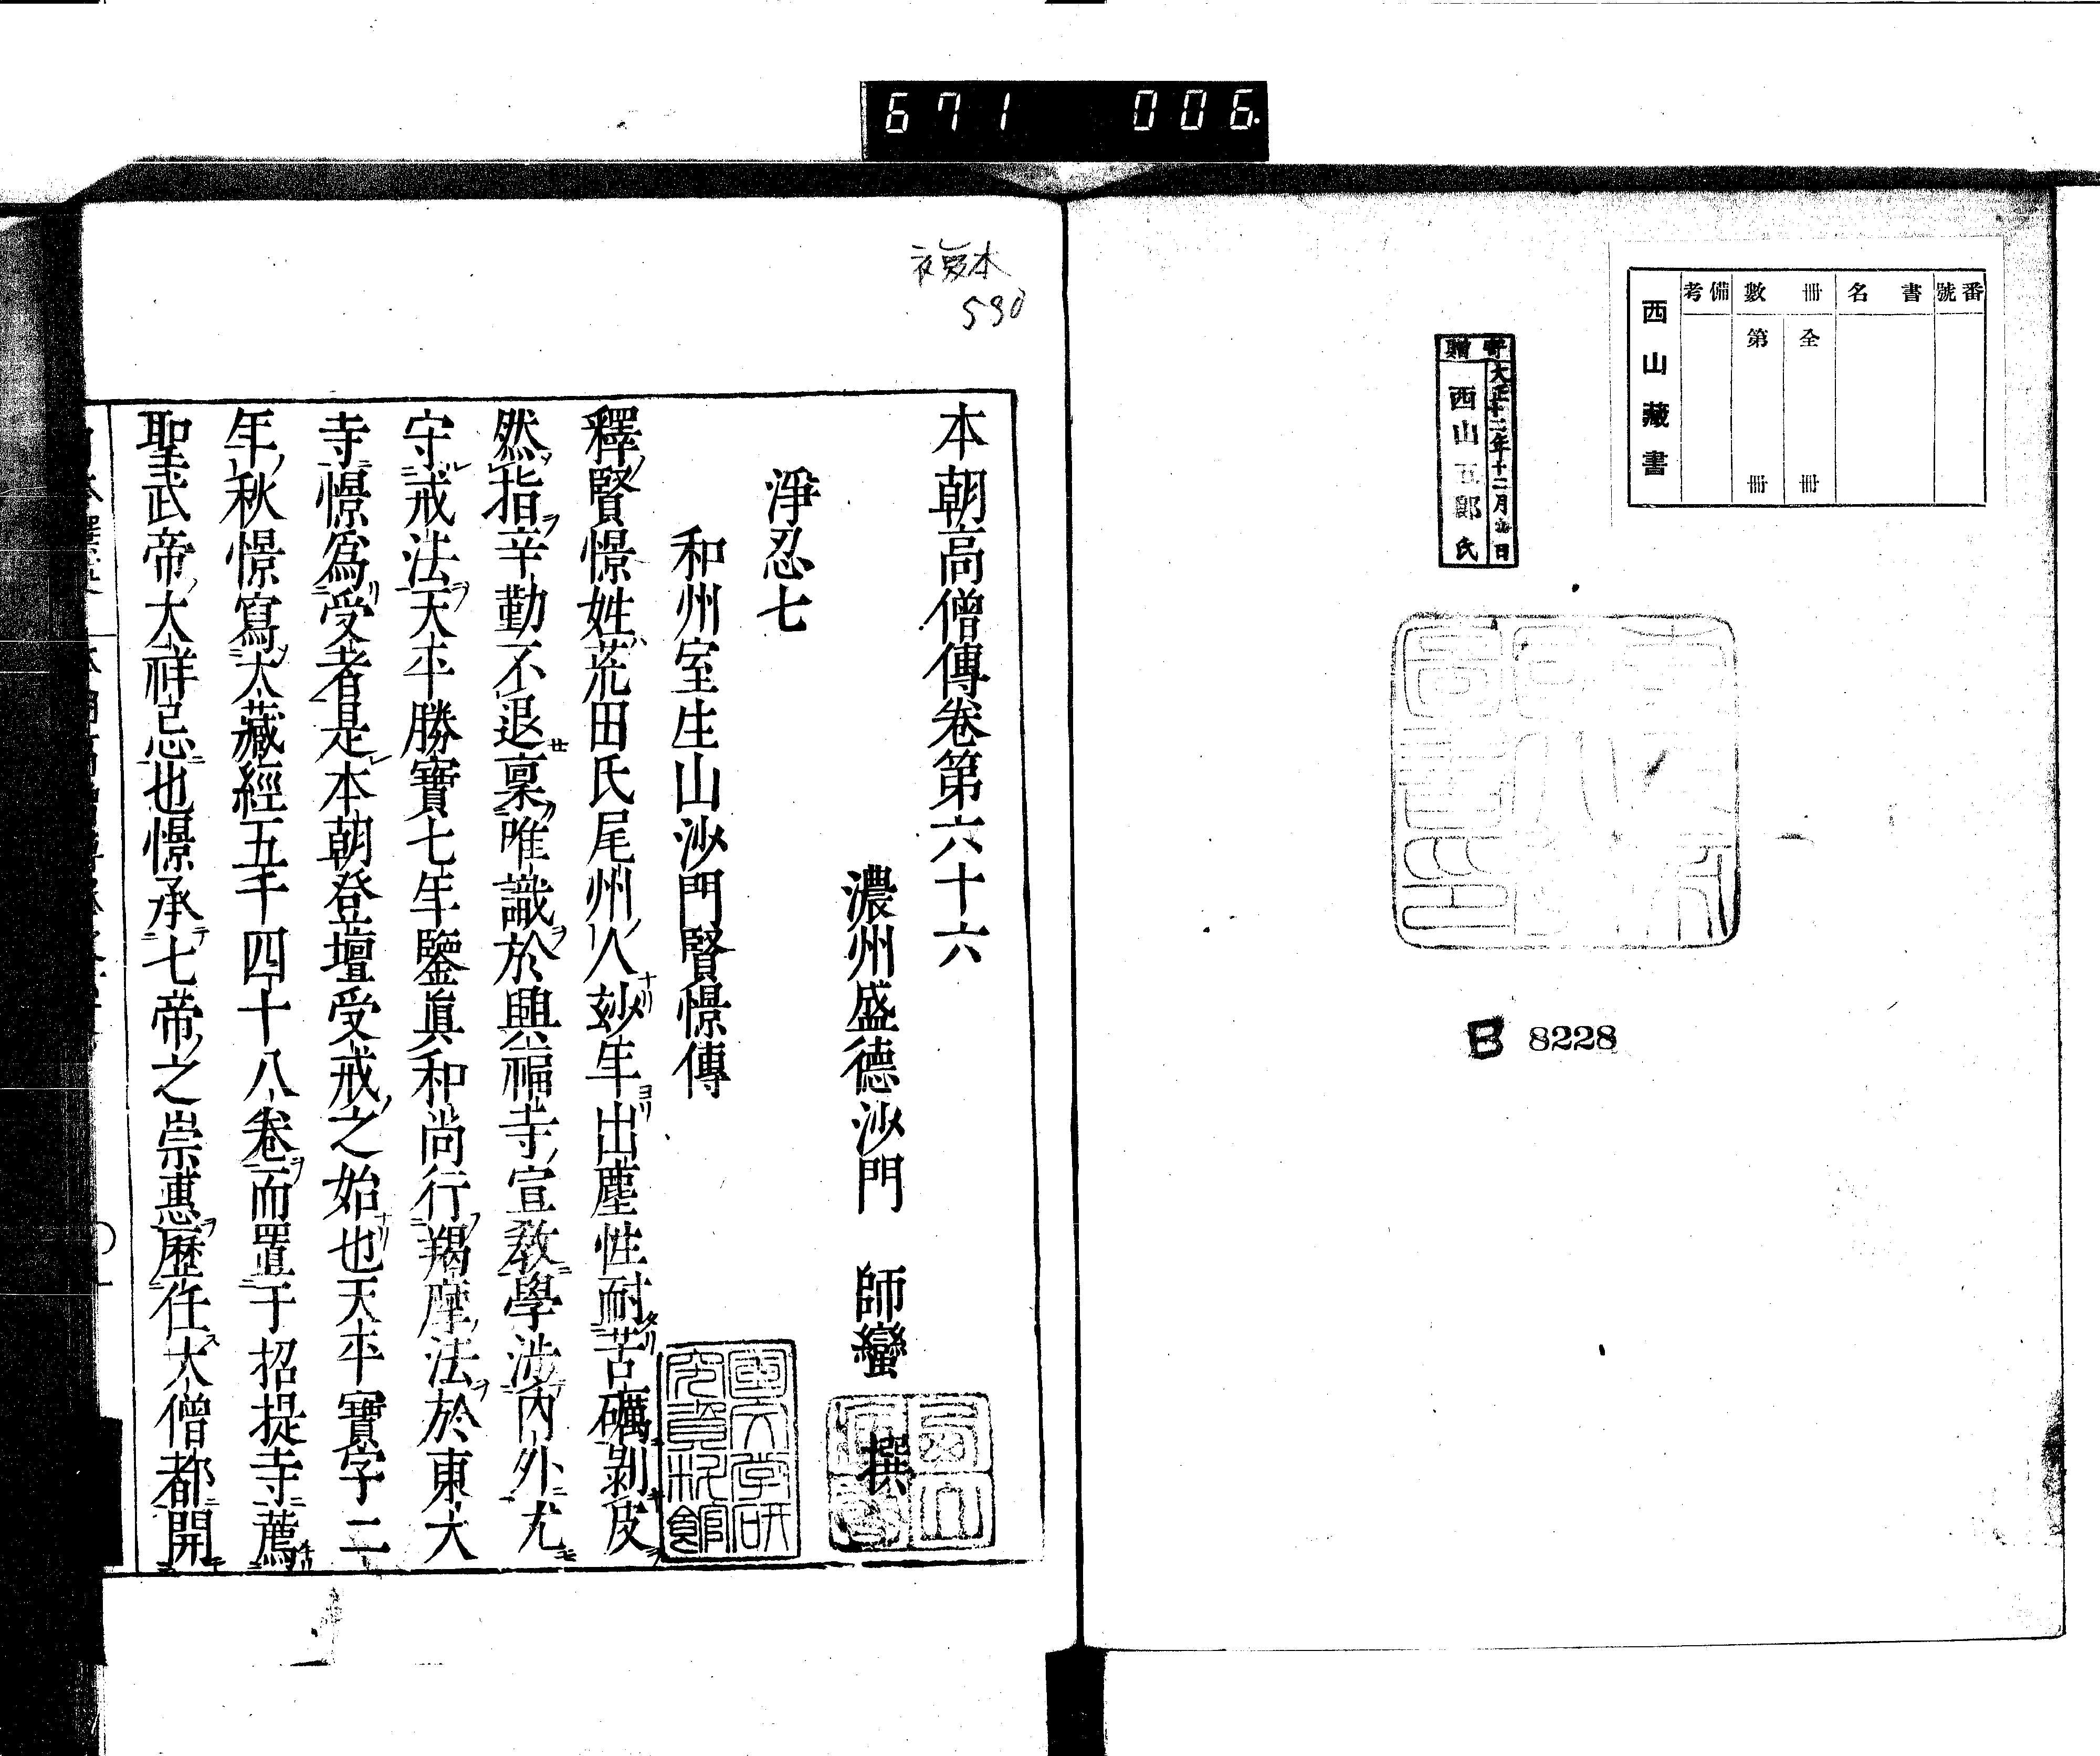 671 006
番號 書名 冊數 備考
全 冊
第 冊
西山藏書
寄贈
大正十二年十二月 日
西山 郎氏
B 8228
複本
590
本朝高僧傳卷第六十六
濃州盛德沙門 師蠻 撰
淨忍七
和州室生山沙門賢憬傳
釋賢憬姓荒田氏尾州人妙年出塵性耐苦礪剝皮
然指辛勤不退稟唯識於興福寺宣教學涉內外尤
守戒法天平勝寶七年鑒眞和尚行羯摩法於東大
寺憬爲受者是本朝登壇受戒之始也天平寶字二
年秋憬寫大藏經五千四十八卷而置于招提寺薦
聖武帝大祥忌也憬承七帝之崇惠歷任大僧都開
國文学研究資料館